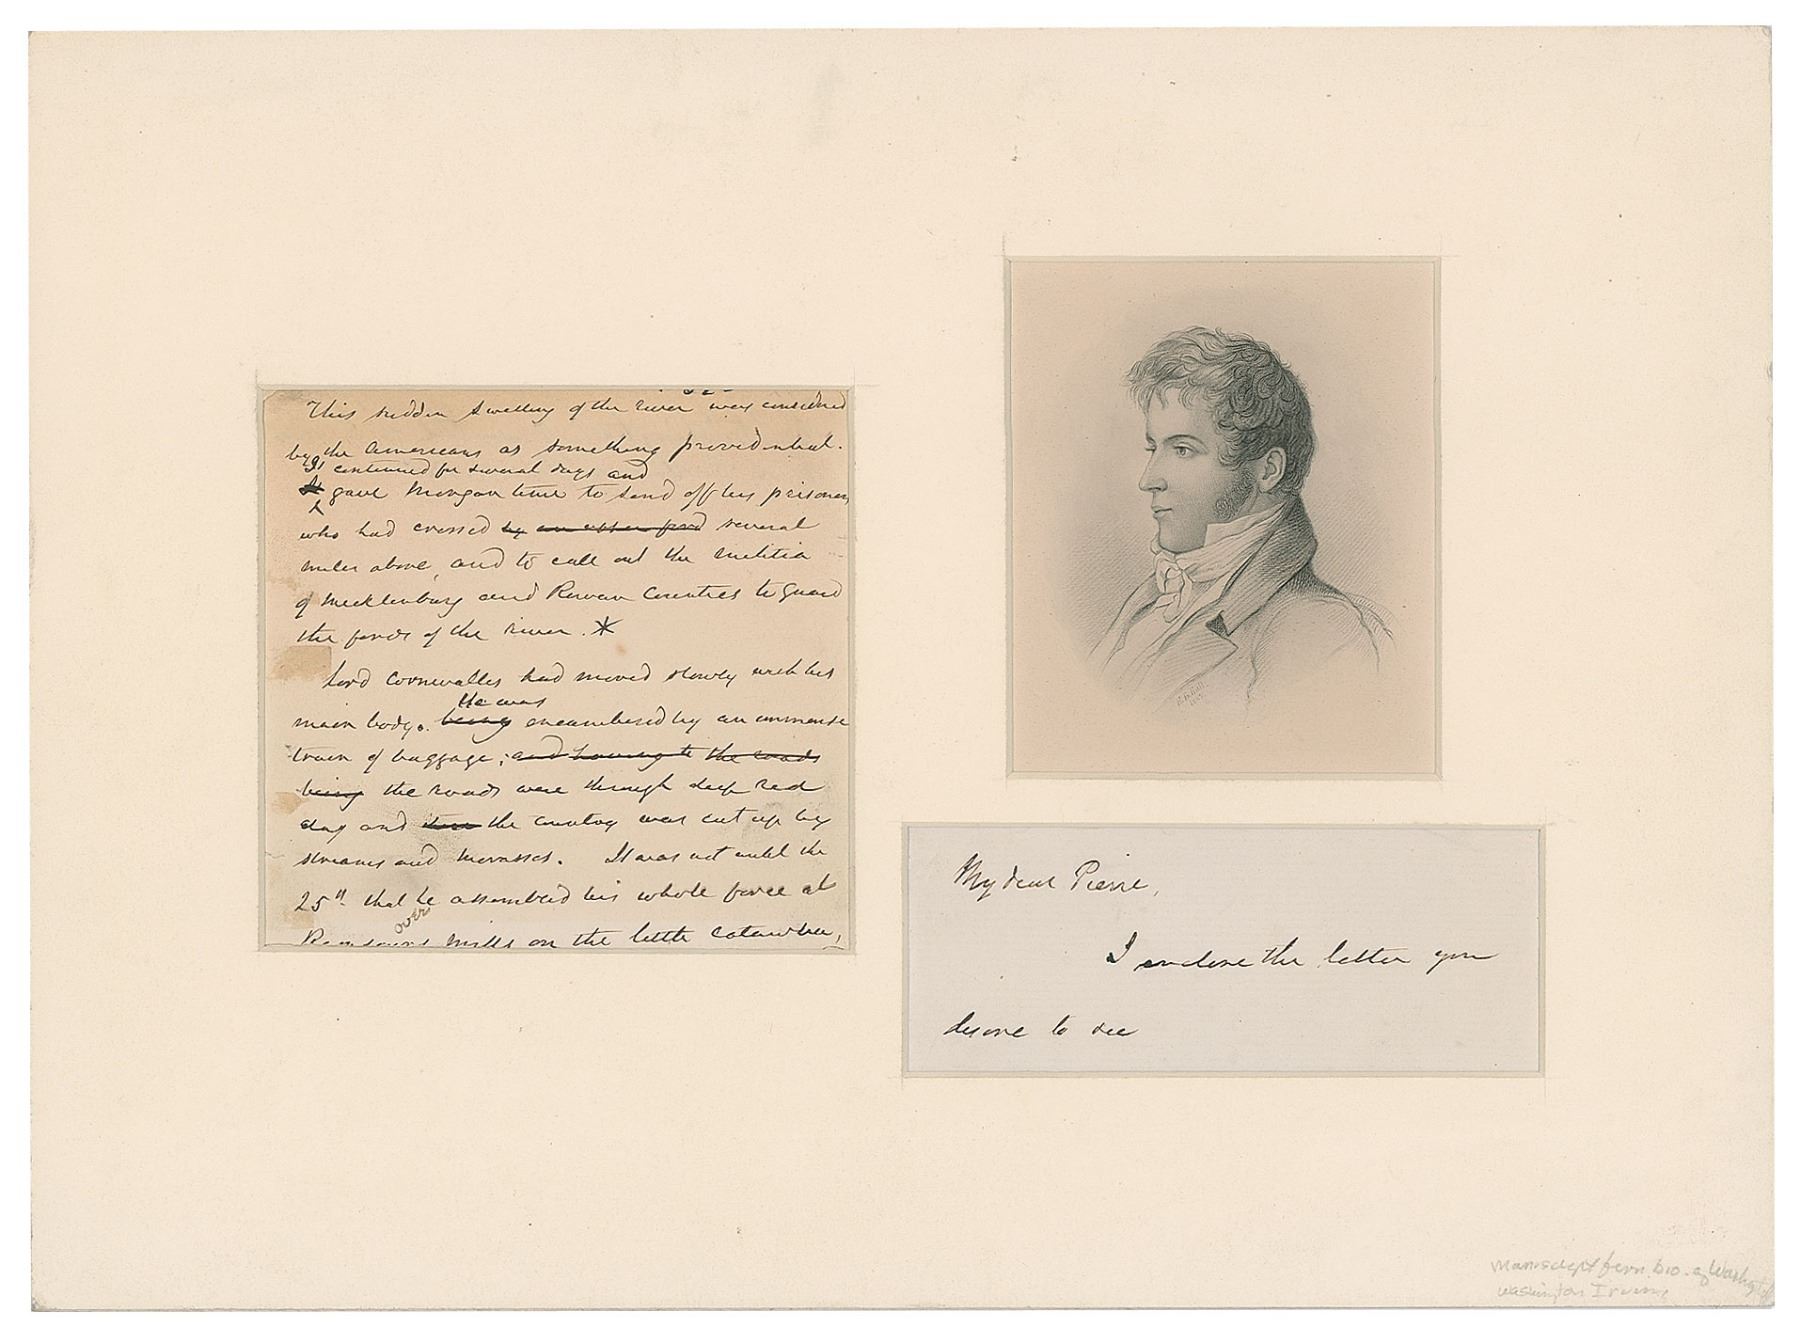 This sudden swelling of the river was considered
by the Americans as something providential.
It continued for several days and
gave Morgan time to send off his prisoners
who had crossed by an other ford several
miles above, and to call out the militia
of Mecklenburg and Rowan Counties to guard
the fords of the river. *
Lord Cornwallis had moved slowly with his
He was
main body. being encumbered by an immense
train of baggage; and having to the roads
being the roads were through deep red
clay and the country was cut up by
streams and morasses. It was not until the
25th that he assembled his whole force at
over
Ramsours mills on the little Catawba,
My dear Pierre,
I enclose the letter you
desire to see
Manuscript from bio. of
Washington Irving